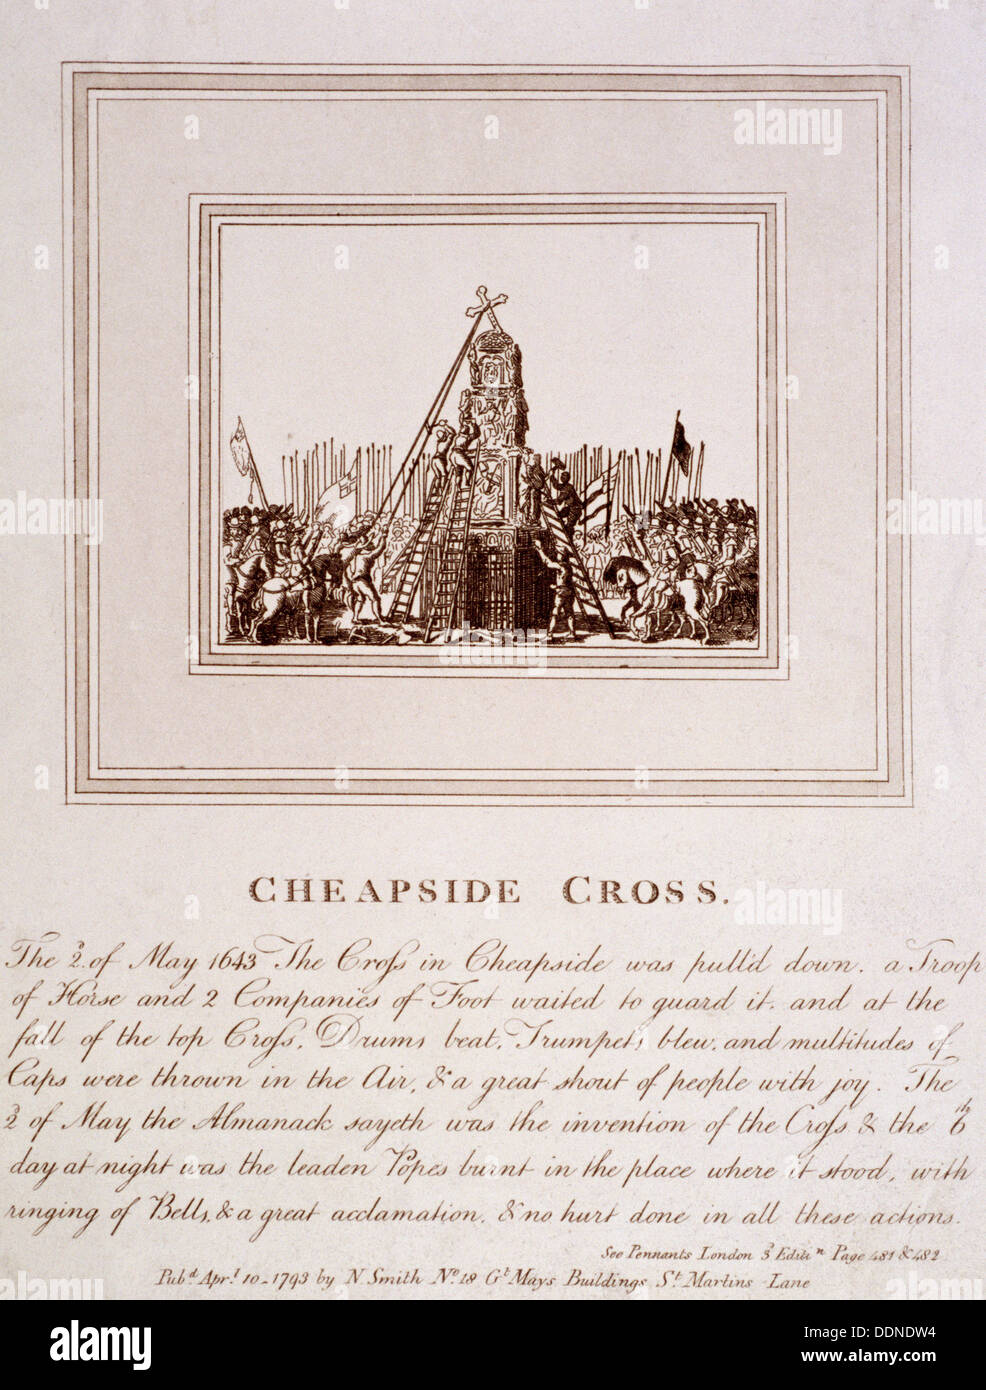 CHEAPSIDE CROSS.
The 2d. of May 1643 The Croſs in Cheapside was pull'd down. a Troop
of Horse and 2 Companies of Foot waited to guard it. and at the
fall of the top Croſs, Drums beat, Trumpets blew, and multitudes of
Caps were thrown in the Air, & a great shout of people with joy. The
2d of May the Almanack sayeth was the invention of the Croſs & the 6th
day at night was the leaden Popes burnt in the place where it stood, with
ringing of Bells, & a great acclamation, & no hurt done in all these actions.
See Pennants London 3d Editin Page 481 & 482
Pubd. Aprl. 10-1793 by N Smith No. 18 Gt Mays Buildings St. Martins Lane
alamy
alamy
alamy
alamy
alamy
alamy
alamy
alamy
a
a
a
a
alamy
Image ID: DDNDW4
www.alamy.com